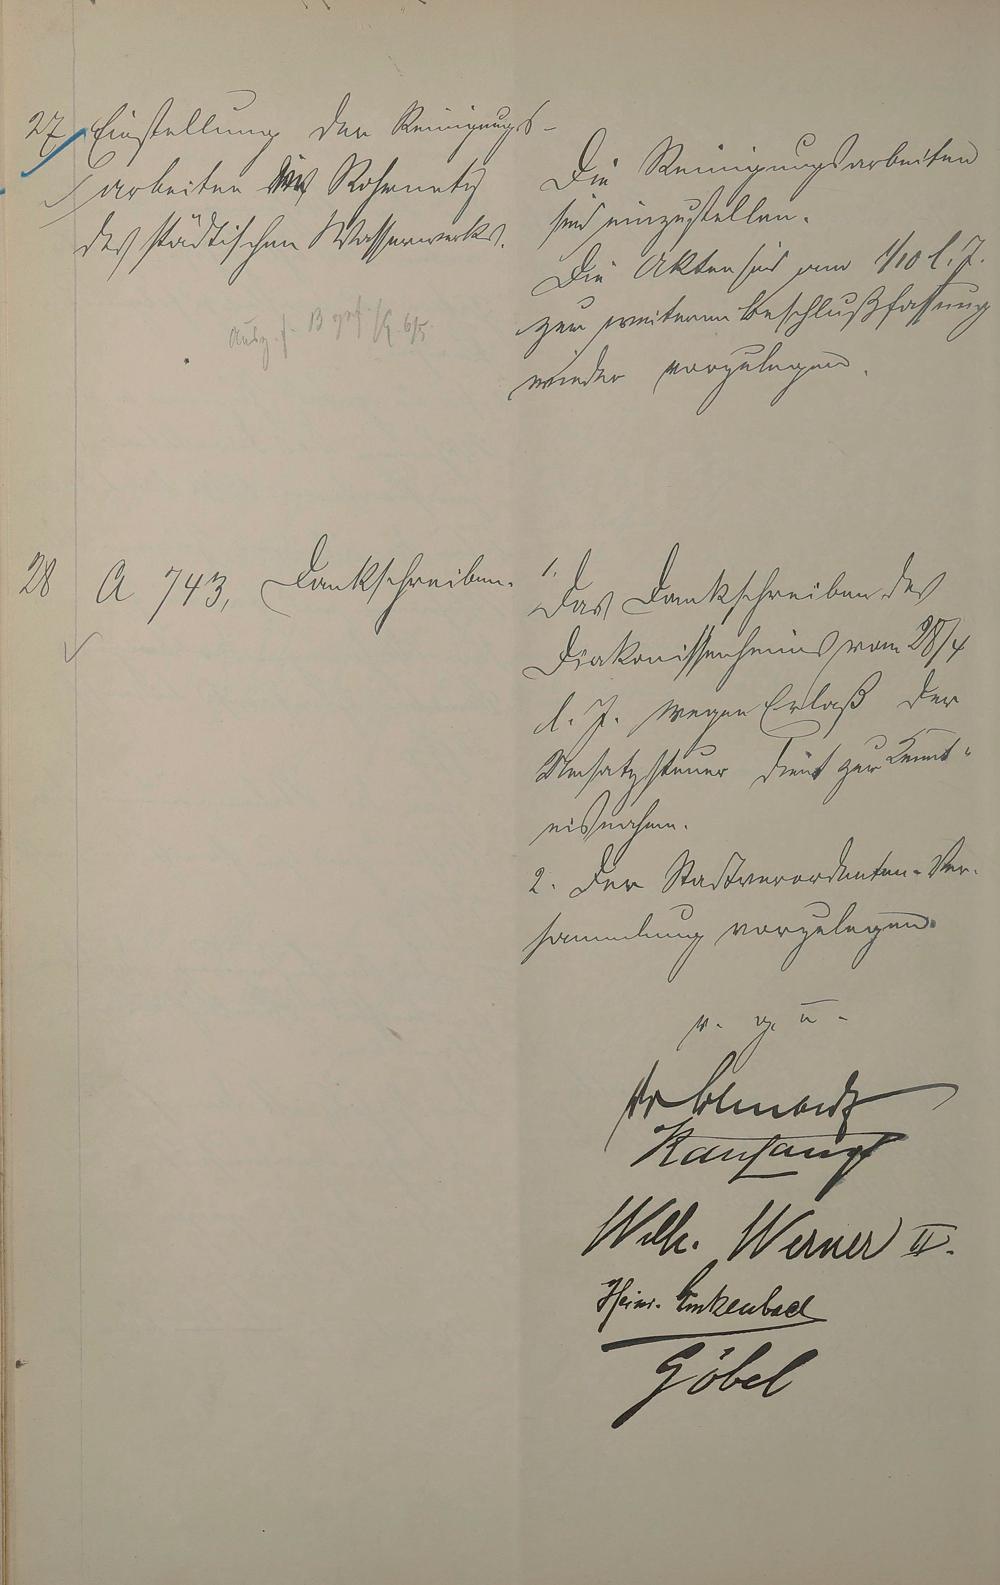 27 Einstellung der Reinigungs-
arbeiten im Rohrnetz
des städtischen Wasserwerks.
Die Reinigungsarbeiten
sind einzustellen.
Die Akten sind am 1/10 l. J.
zur weiteren Beschlußfassung
wieder vorzulegen.
28 A 743, Dankschreiben.
1.
Das Dankschreiben des
Diakonissenheims vom 28/4
l. J. wegen Erlaß der
Umsatzsteuer dient zur Kennt-
nisnahme.
2. Der Stadtverordneten-Ver-
sammlung vorzulegen.
v. g. u.
Wilh. Werner II.
Heinr.
Göbel